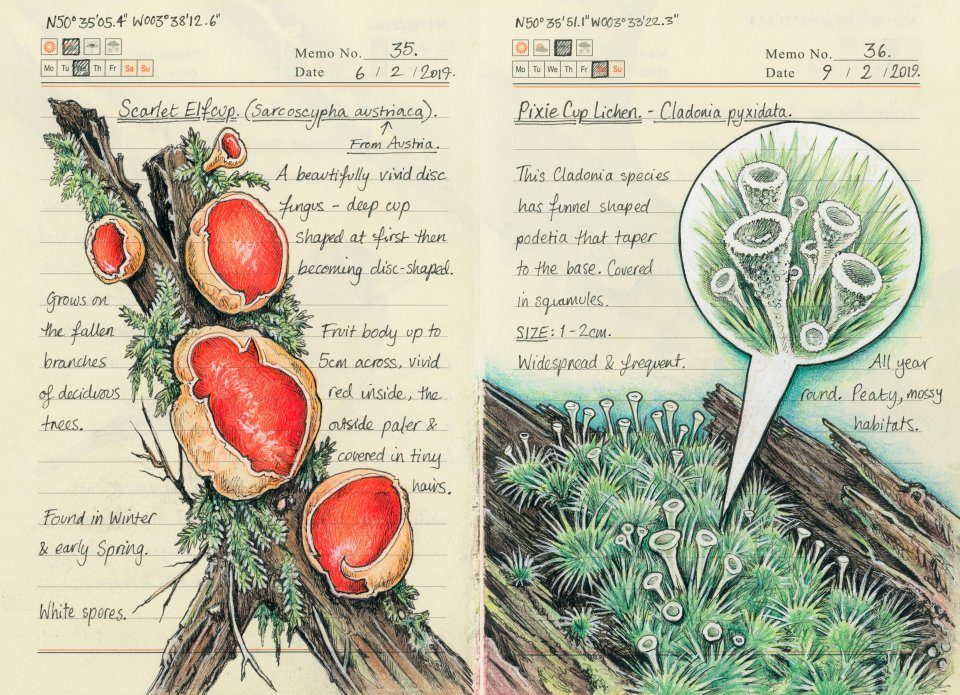 N50°35'05.4" W003°38'12.6"
Memo No. 35.
Mo Tu We Th Fr Sa Su
Date 6 / 2 / 2019.
Scarlet Elfcup. (Sarcoscypha austriaca).
From Austria.
A beautifully vivid disc
fungus – deep cup
shaped at first then
becoming disc-shaped.
Grows on
the fallen
branches
of deciduous
trees.
Fruit body up to
5cm across, vivid
red inside, the
outside paler &
covered in tiny
hairs.
Found in Winter
& early Spring.
White spores.
N50°35'51.1" W003°33'22.3"
Memo No. 36.
Mo Tu We Th Fr Sa Su
Date 9 / 2 / 2019.
Pixie Cup Lichen. - Cladonia pyxidata.
This Cladonia species
has funnel shaped
podetia that taper
to the base. Covered
in squamules.
SIZE: 1-2cm.
Widespread & frequent.
All year
round. Peaty, mossy
habitats.